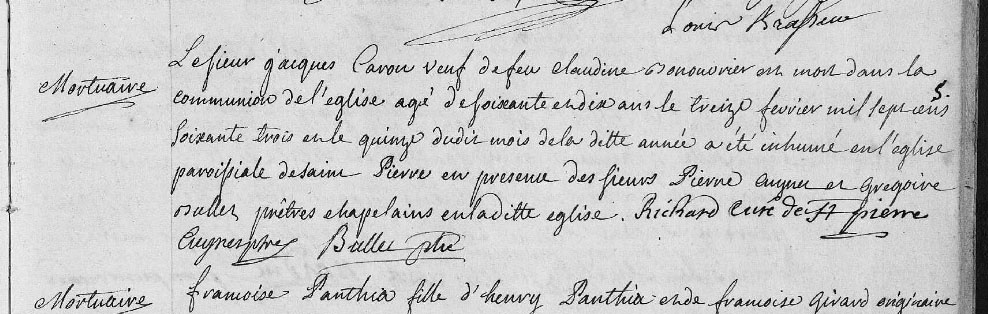 Louis Brasseur
5.
Mortuaire
Le sieur jacques Caron veuf de feu Claudine Bonouvrier est mort dans la
communion de l'eglise agé de soixante en dix ans le treize fevrier mil sept cens
soixante trois en le quinze dudit mois de la ditte année a été inhumé en l'église
paroissiale de saint Pierre en presence des sieurs Pierre Cuynet et gregoire
Bullet prêtres chapelains en la ditte eglise. Richard curé de St pierre
Cuynet ptre Bullet ptre
Mortuaire
francoise Panthia fille d'henry Panthia en de francoise girard originaire